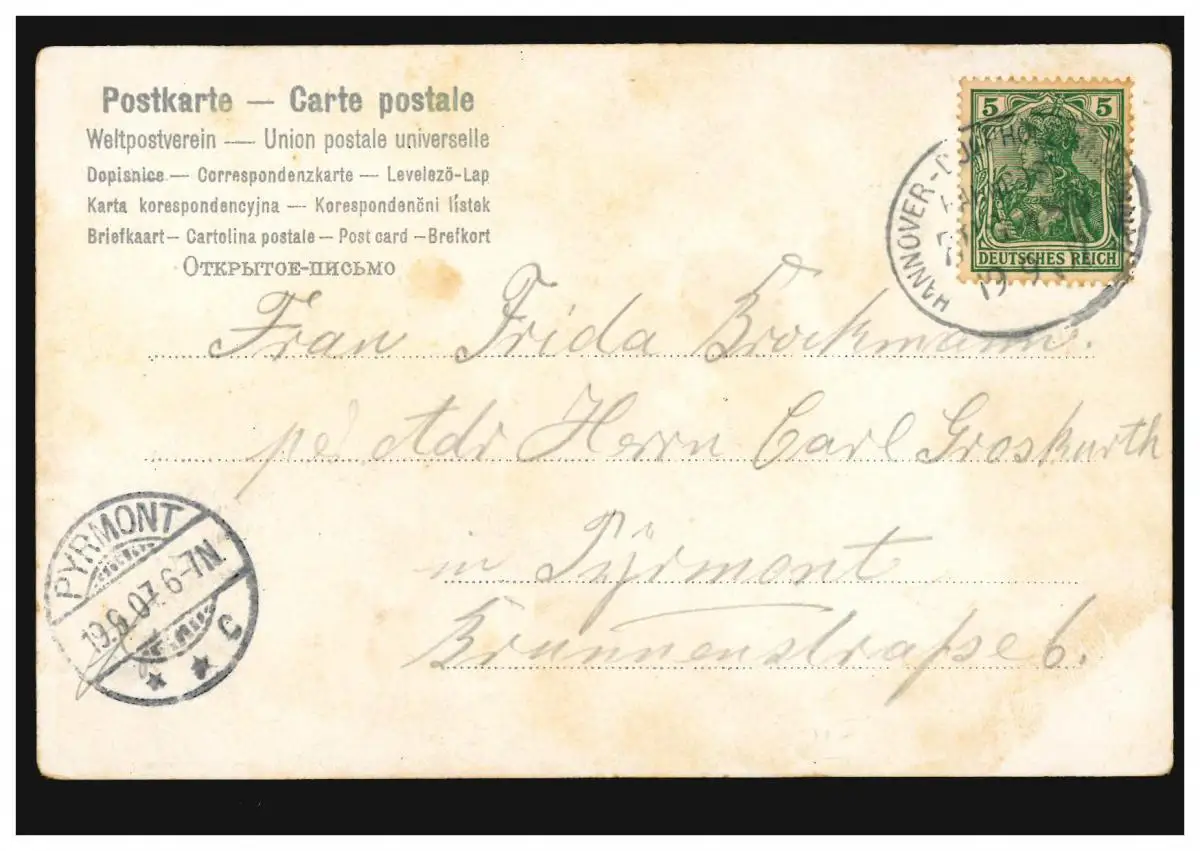 Postkarte — Carte postale
Weltpostverein — Union postale universelle
Dopisnice — Correspondenzkarte — Levelező-Lap
Karta korespondencyjna — Korespondenčni lístek
Briefkaart — Cartolina postale — Post card — Brefkort
Открытое-письмо
5 5
DEUTSCHES REICH
HANNOVER-
19 9
Frau Frida Brockmann.
Adr Herrn Carl Groskurth
in Pyrmont
Brunnenstraße 6.
PYRMONT
07. 6-7N.
C